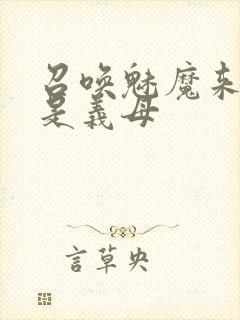 召唤魅魔来
是義母
言草央